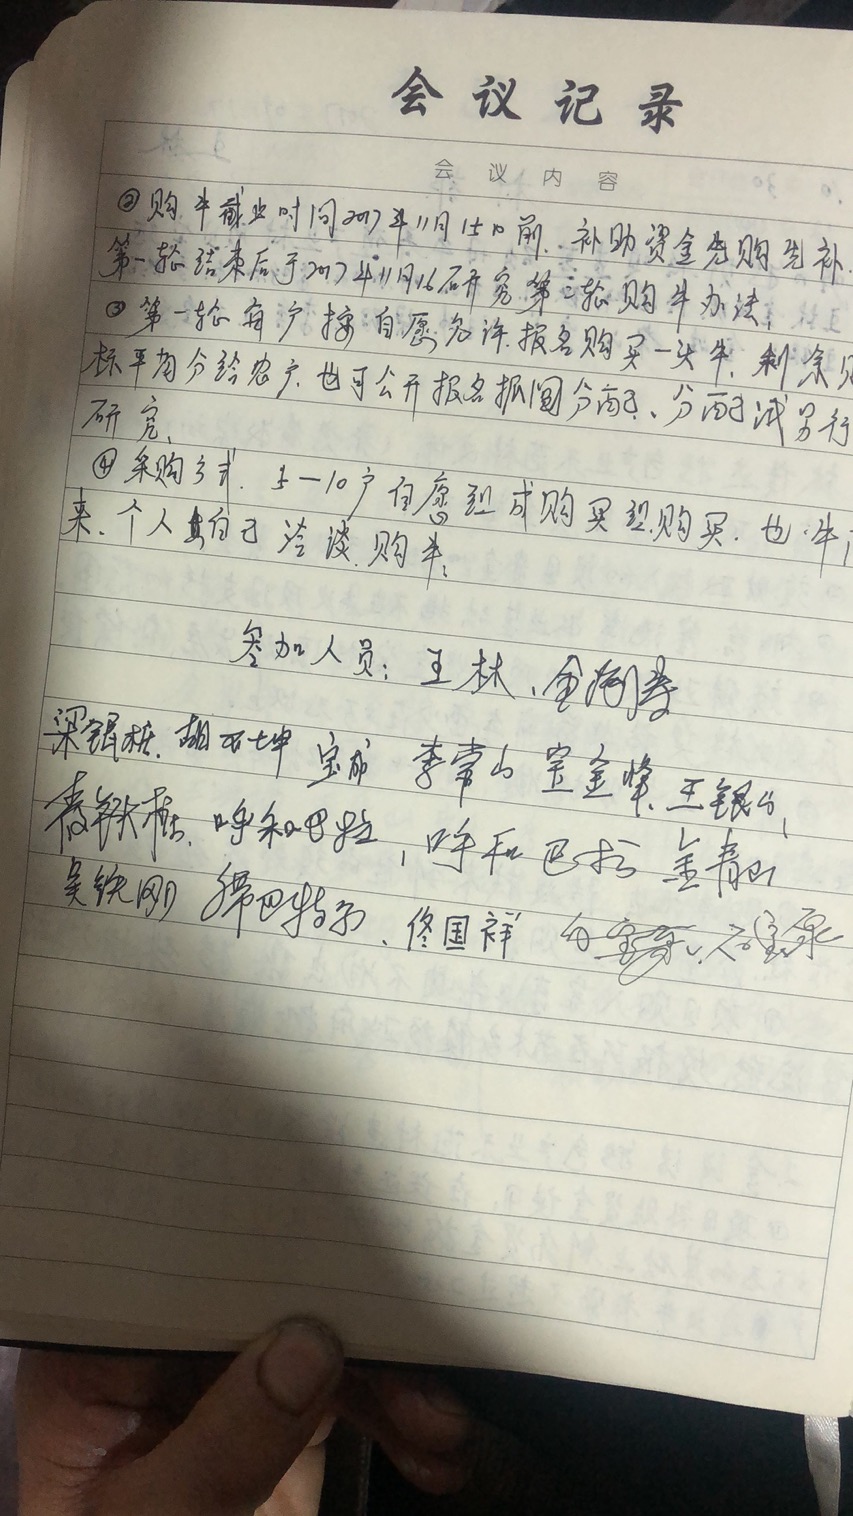 会议记录
会议内容
②购牛截止时间2017年11月15日前.补助资金先购先补.
第一轮结束后于2017年11月16研究第二轮购牛办法,
③第一轮每户按自愿允许报名购买一头牛.剩余
标平均分给农户.也可公开报名抓阄分配、分配试另行
研究,
④采购方式.5—10户自愿组成购买组.购买.也.牛
来、个人自己洽谈购牛.
参加人员:王林、金
梁银桩.胡石坤 宝成 李常山 金峰、王银山,
铁柱.呼和巴拉,呼和巴拉 金青山
吴铁刚 巴特尔、佟国祥 白